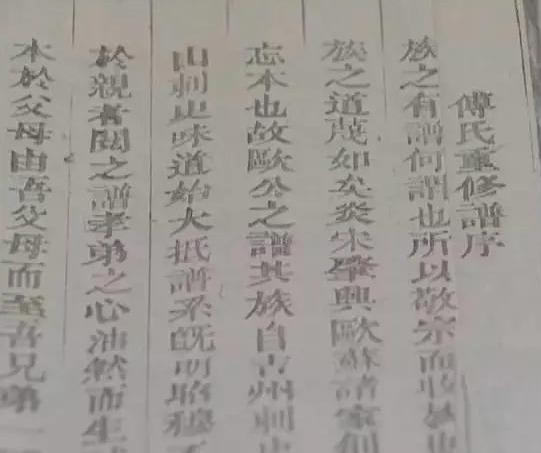 傅氏重修譜序
族之有譜何謂也所以敬宗而收族也
族之道蔑如矣炎宋肇興歐蘇諸家創
忘本也故歐公之譜其族自吉州刺史
山刺史味道始大抵譜系旣明昭穆不
於親者闕之譜孝弟之心油然而生
本於父母由吾父母而至吾兄弟一